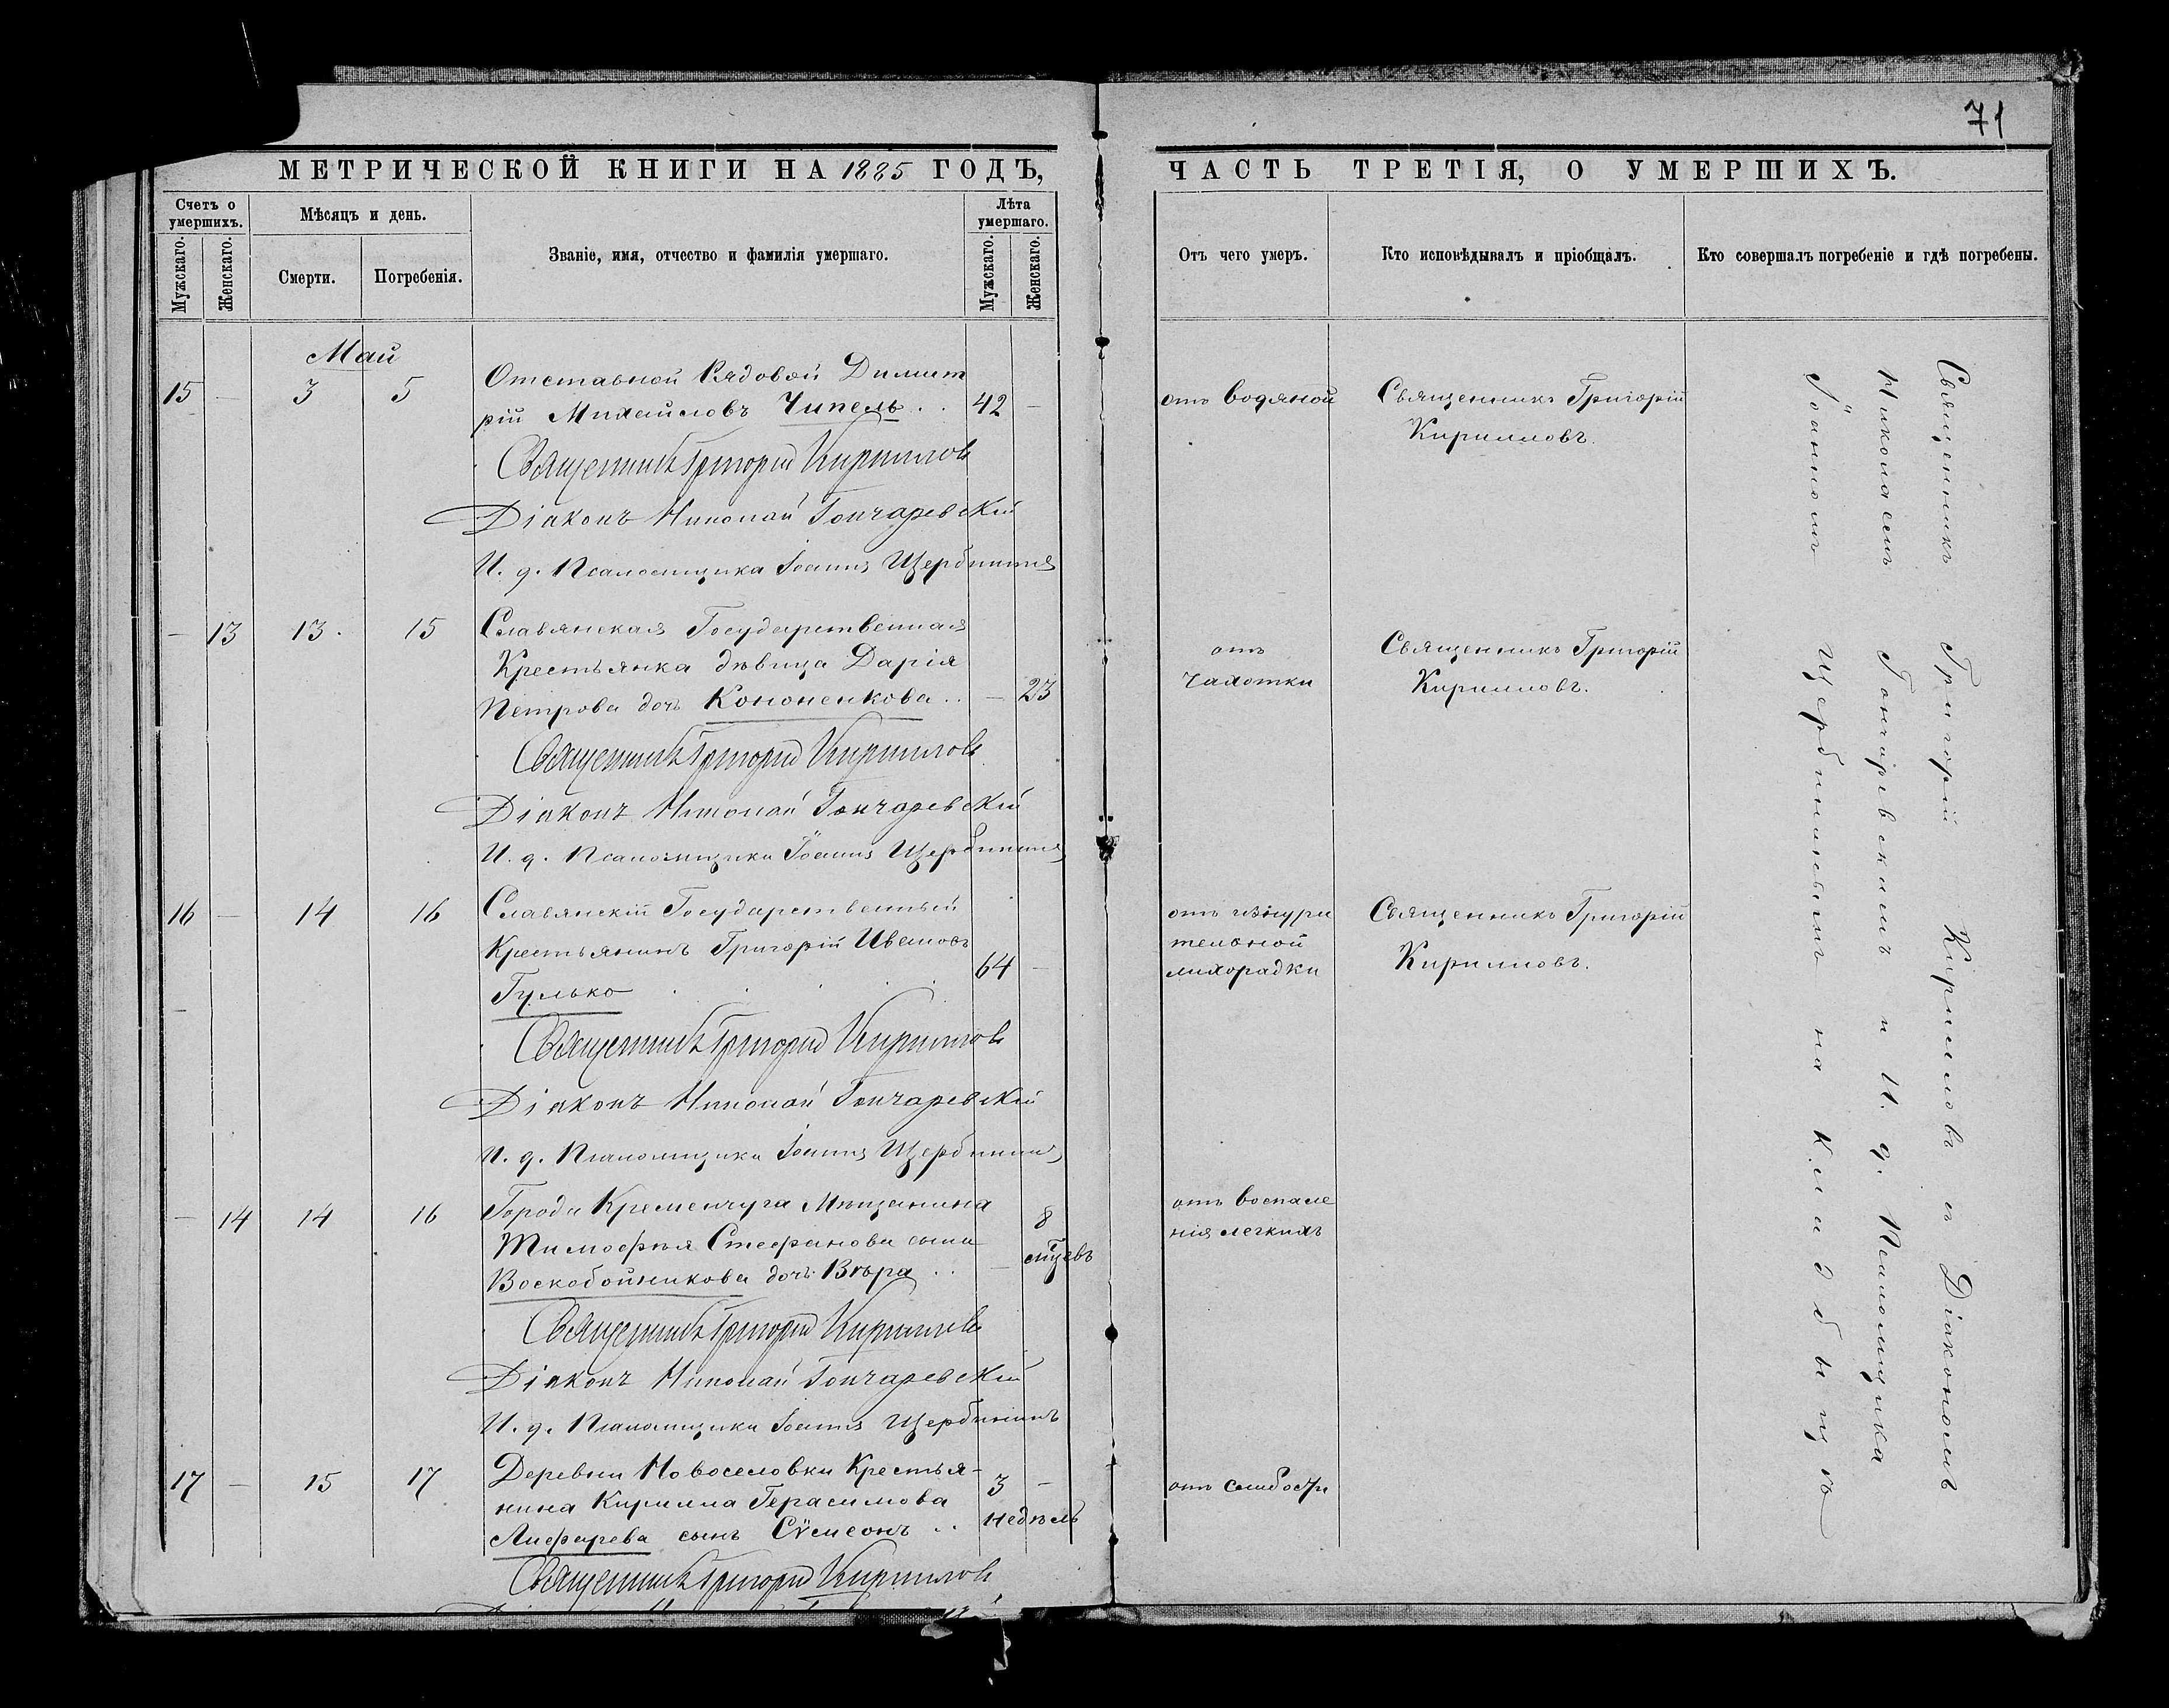 71
МЕТРИЧЕСКОЙ КНИГИ НА 1885 ГОДЪ,
ЧАСТЬ ТРЕТІЯ, О УМЕРШИХЪ.
Счетъ о умершихъ.
Мужскаго.
Женскаго.
Мѣсяцъ и день.
Смерти.
Погребенія.
Званіе, имя, отчество и фамилія умершаго.
Лѣта умершаго.
Мужскаго.
Женскаго.
Отъ чего умеръ.
Кто исповѣдывалъ и пріобщалъ.
Кто совершалъ погребеніе и гдѣ погребены.
Май
15 — 3 5
Отставной Рядовой Димит
рій Михайловъ Чипель .. 42 —
отъ водяной
Священникъ Григорій
Кирилловъ.
Священникъ Григорій Кирилловъ
Діаконъ Николай Гончаревскій
И. д. Псаломщика Іоаннъ Щербининъ
— 13 13. 15
Славянская Государственная
Крестьянка дѣвица Дарія
Петрова дочь Кононенкова .. — 23
отъ
чахотки
Священникъ Григорій
Кирилловъ.
Священникъ Григорій Кирилловъ
Діаконъ Николай Гончаревскій
И. д. Псаломщика Іоаннъ Щербининъ
16 — 14 16
Славянскій Государственный
Крестьянинъ Григорій Ивановъ
Гулько . . . . . 64 —
отъ изнури
тельной
лихорадки
Священникъ Григорій
Кирилловъ.
Священникъ Григорій Кирилловъ
Діаконъ Николай Гончаревскій
И. д. Псаломщика Іоаннъ Щербининъ
— 14 14 16
Города Кременчуга Мѣщанина
Тимофѣя Стефанова сына
Воскобойникова дочь Вѣра .. — 8 мцевъ
отъ воспале
нія легкихъ
Священникъ Григорій Кирилловъ
Діаконъ Николай Гончаревскій
И. д. Псаломщика Іоаннъ Щербининъ
17 — 15 17
Деревни Новоселовки Крестья-
нина Кирилла Герасимова
Лифарева сынъ Сѵмеонъ .. 3 недѣль —
отъ слабости
Священникъ Григорій Кирилловъ
Священникъ Григорій Кирилловъ съ Діакономъ
Николаемъ Гончаревскимъ и И. д. Псаломщика
Іоанномъ Щербининымъ на кладбищѣ